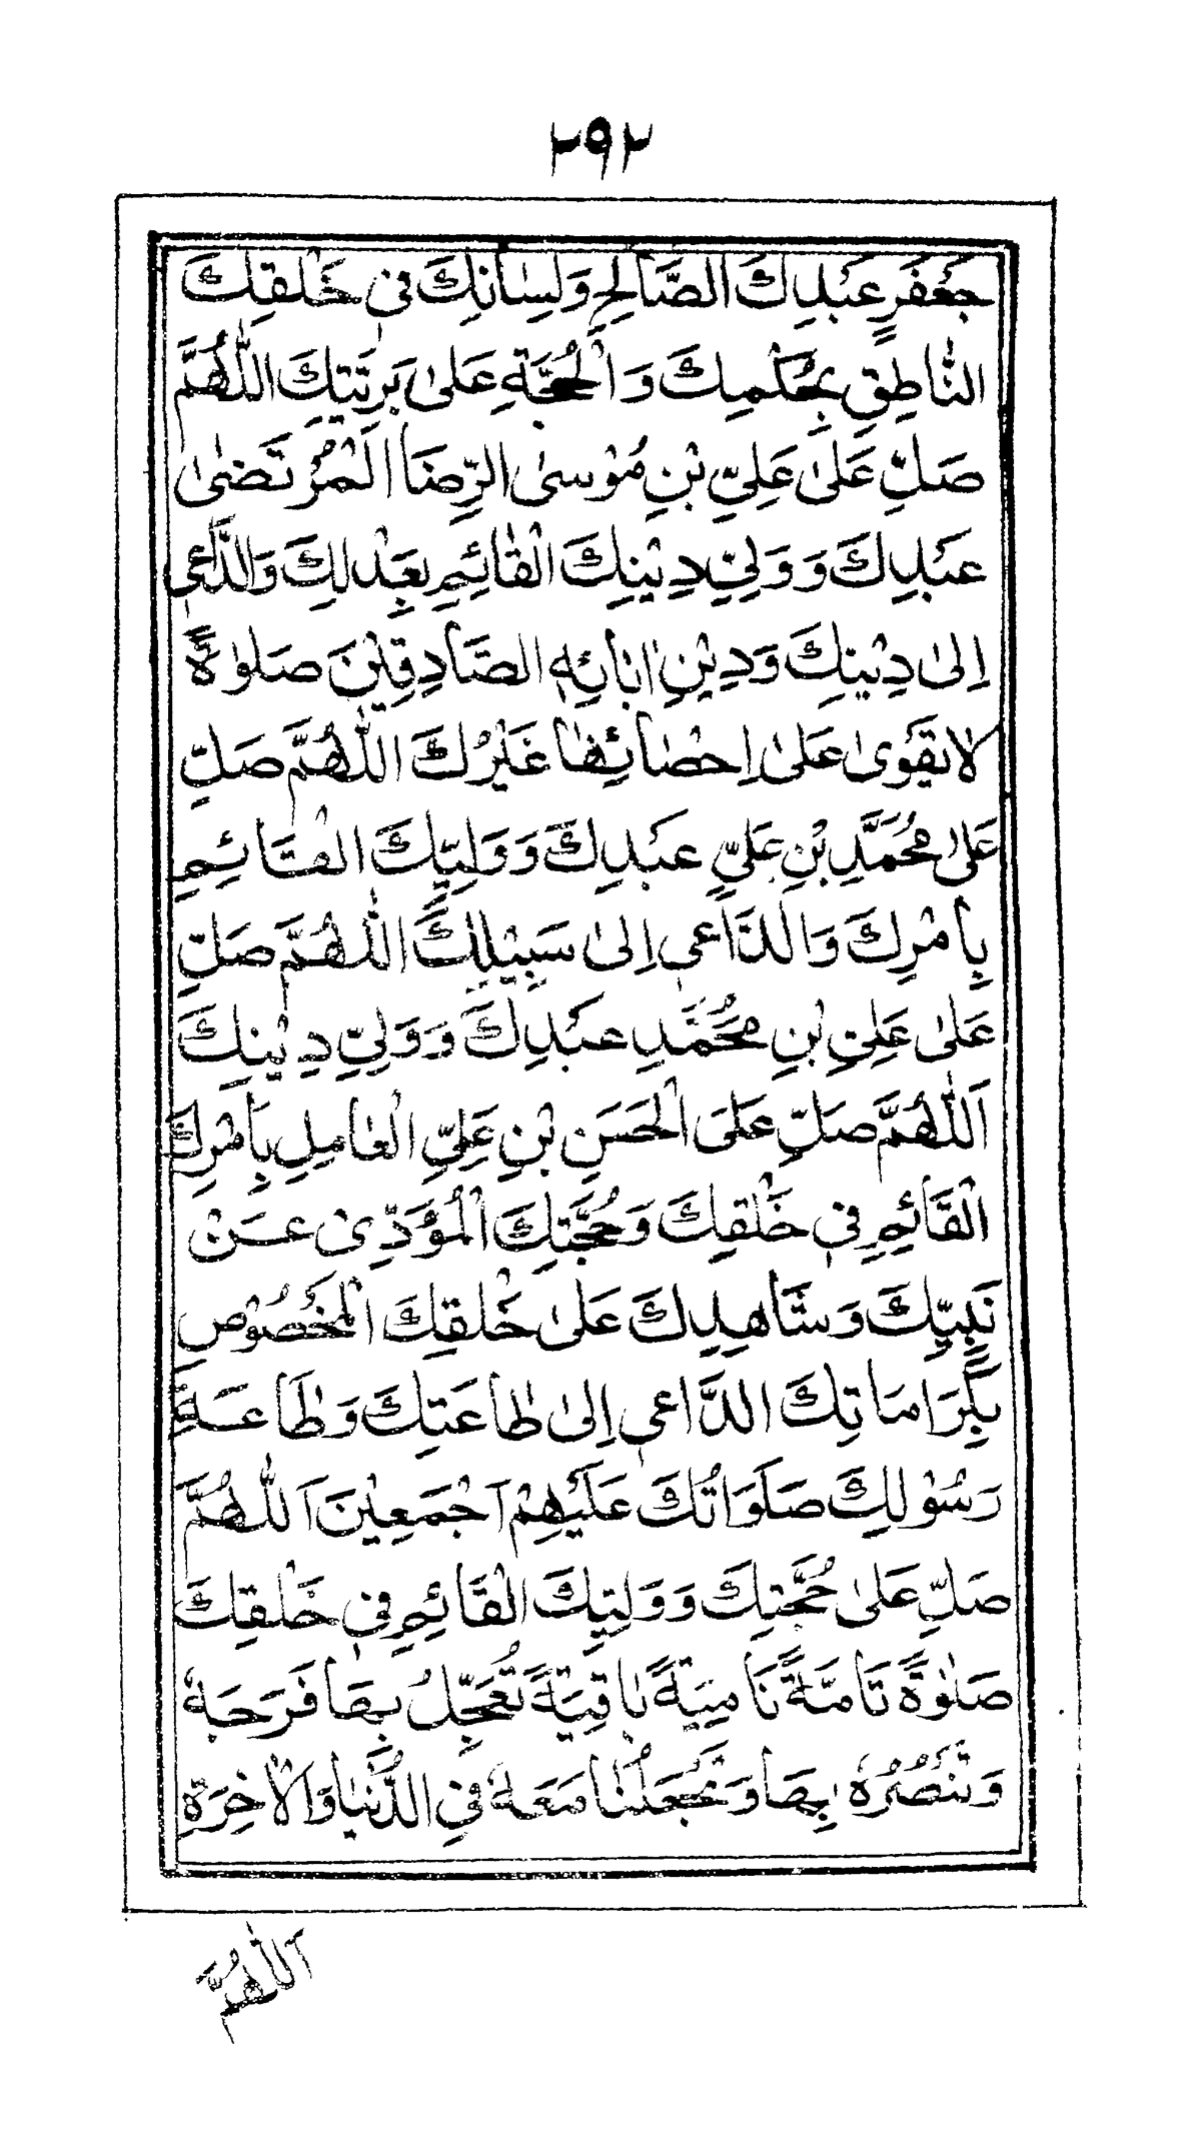 ۲۹۲
جَعْفَرٍ عَبْدِكَ الصَّالِحِ وَلِسَانِكَ فِى خَلْقِكَ
النَّاطِقِ بِحُكْمِكَ وَالْحُجَّةِ عَلىٰ بَرِيَّتِكَ اللّٰهُمَّ
صَلِّ عَلىٰ عَلِيِّ بْنِ مُوْسىٰ الرِّضَا الْمُرْتَضىٰ
عَبْدِكَ وَوَلِيِّ دِيْنِكَ الْقَائِمِ بِعَدْلِكَ وَالدَّاعِى
اِلىٰ دِيْنِكَ وَدِيْنِ اٰبَائِهِ الصَّادِقِيْنَ صَلوٰةً
لَا يَقْوىٰ عَلىٰ اِحْصَائِهَا غَيْرُكَ اللّٰهُمَّ صَلِّ
عَلىٰ مُحَمَّدِ بْنِ عَلِيٍّ عَبْدِكَ وَوَلِيِّكَ الْقَائِمِ
بِاَمْرِكَ وَالدَّاعِى اِلىٰ سَبِيْلِكَ اللّٰهُمَّ صَلِّ
عَلىٰ عَلِيِّ بْنِ مُحَمَّدٍ عَبْدِكَ وَوَلِيِّ دِيْنِكَ
اَللّٰهُمَّ صَلِّ عَلَى الْحَسَنِ بْنِ عَلِيٍّ الْعَامِلِ بِاَمْرِكَ
الْقَائِمِ فِى خَلْقِكَ وَحُجَّتِكَ الْمُؤَدِّىْ عَنْ
نَبِيِّكَ وَشَاهِدِكَ عَلىٰ خَلْقِكَ الْمَخْصُوْصِ
بِكَرَامَاتِكَ الدَّاعِى اِلىٰ طَاعَتِكَ وَطَاعَةِ
رَسُوْلِكَ صَلَوَاتُكَ عَلَيْهِمْ اَجْمَعِيْنَ اَللّٰهُمَّ
صَلِّ عَلىٰ حُجَّتِكَ وَوَلِيِّكَ الْقَائِمِ فِى خَلْقِكَ
صَلٰوةً تَامَّةً نَامِيَةً بَاقِيَةً تُعَجِّلُ بِهَا فَرَجَهُ
وَتَنْصُرُهُ بِهَا وَتَجْعَلُنَا مَعَهُ فِى الدُّنْيَا وَالْاٰخِرَةِ
اَللّٰهُمَّ